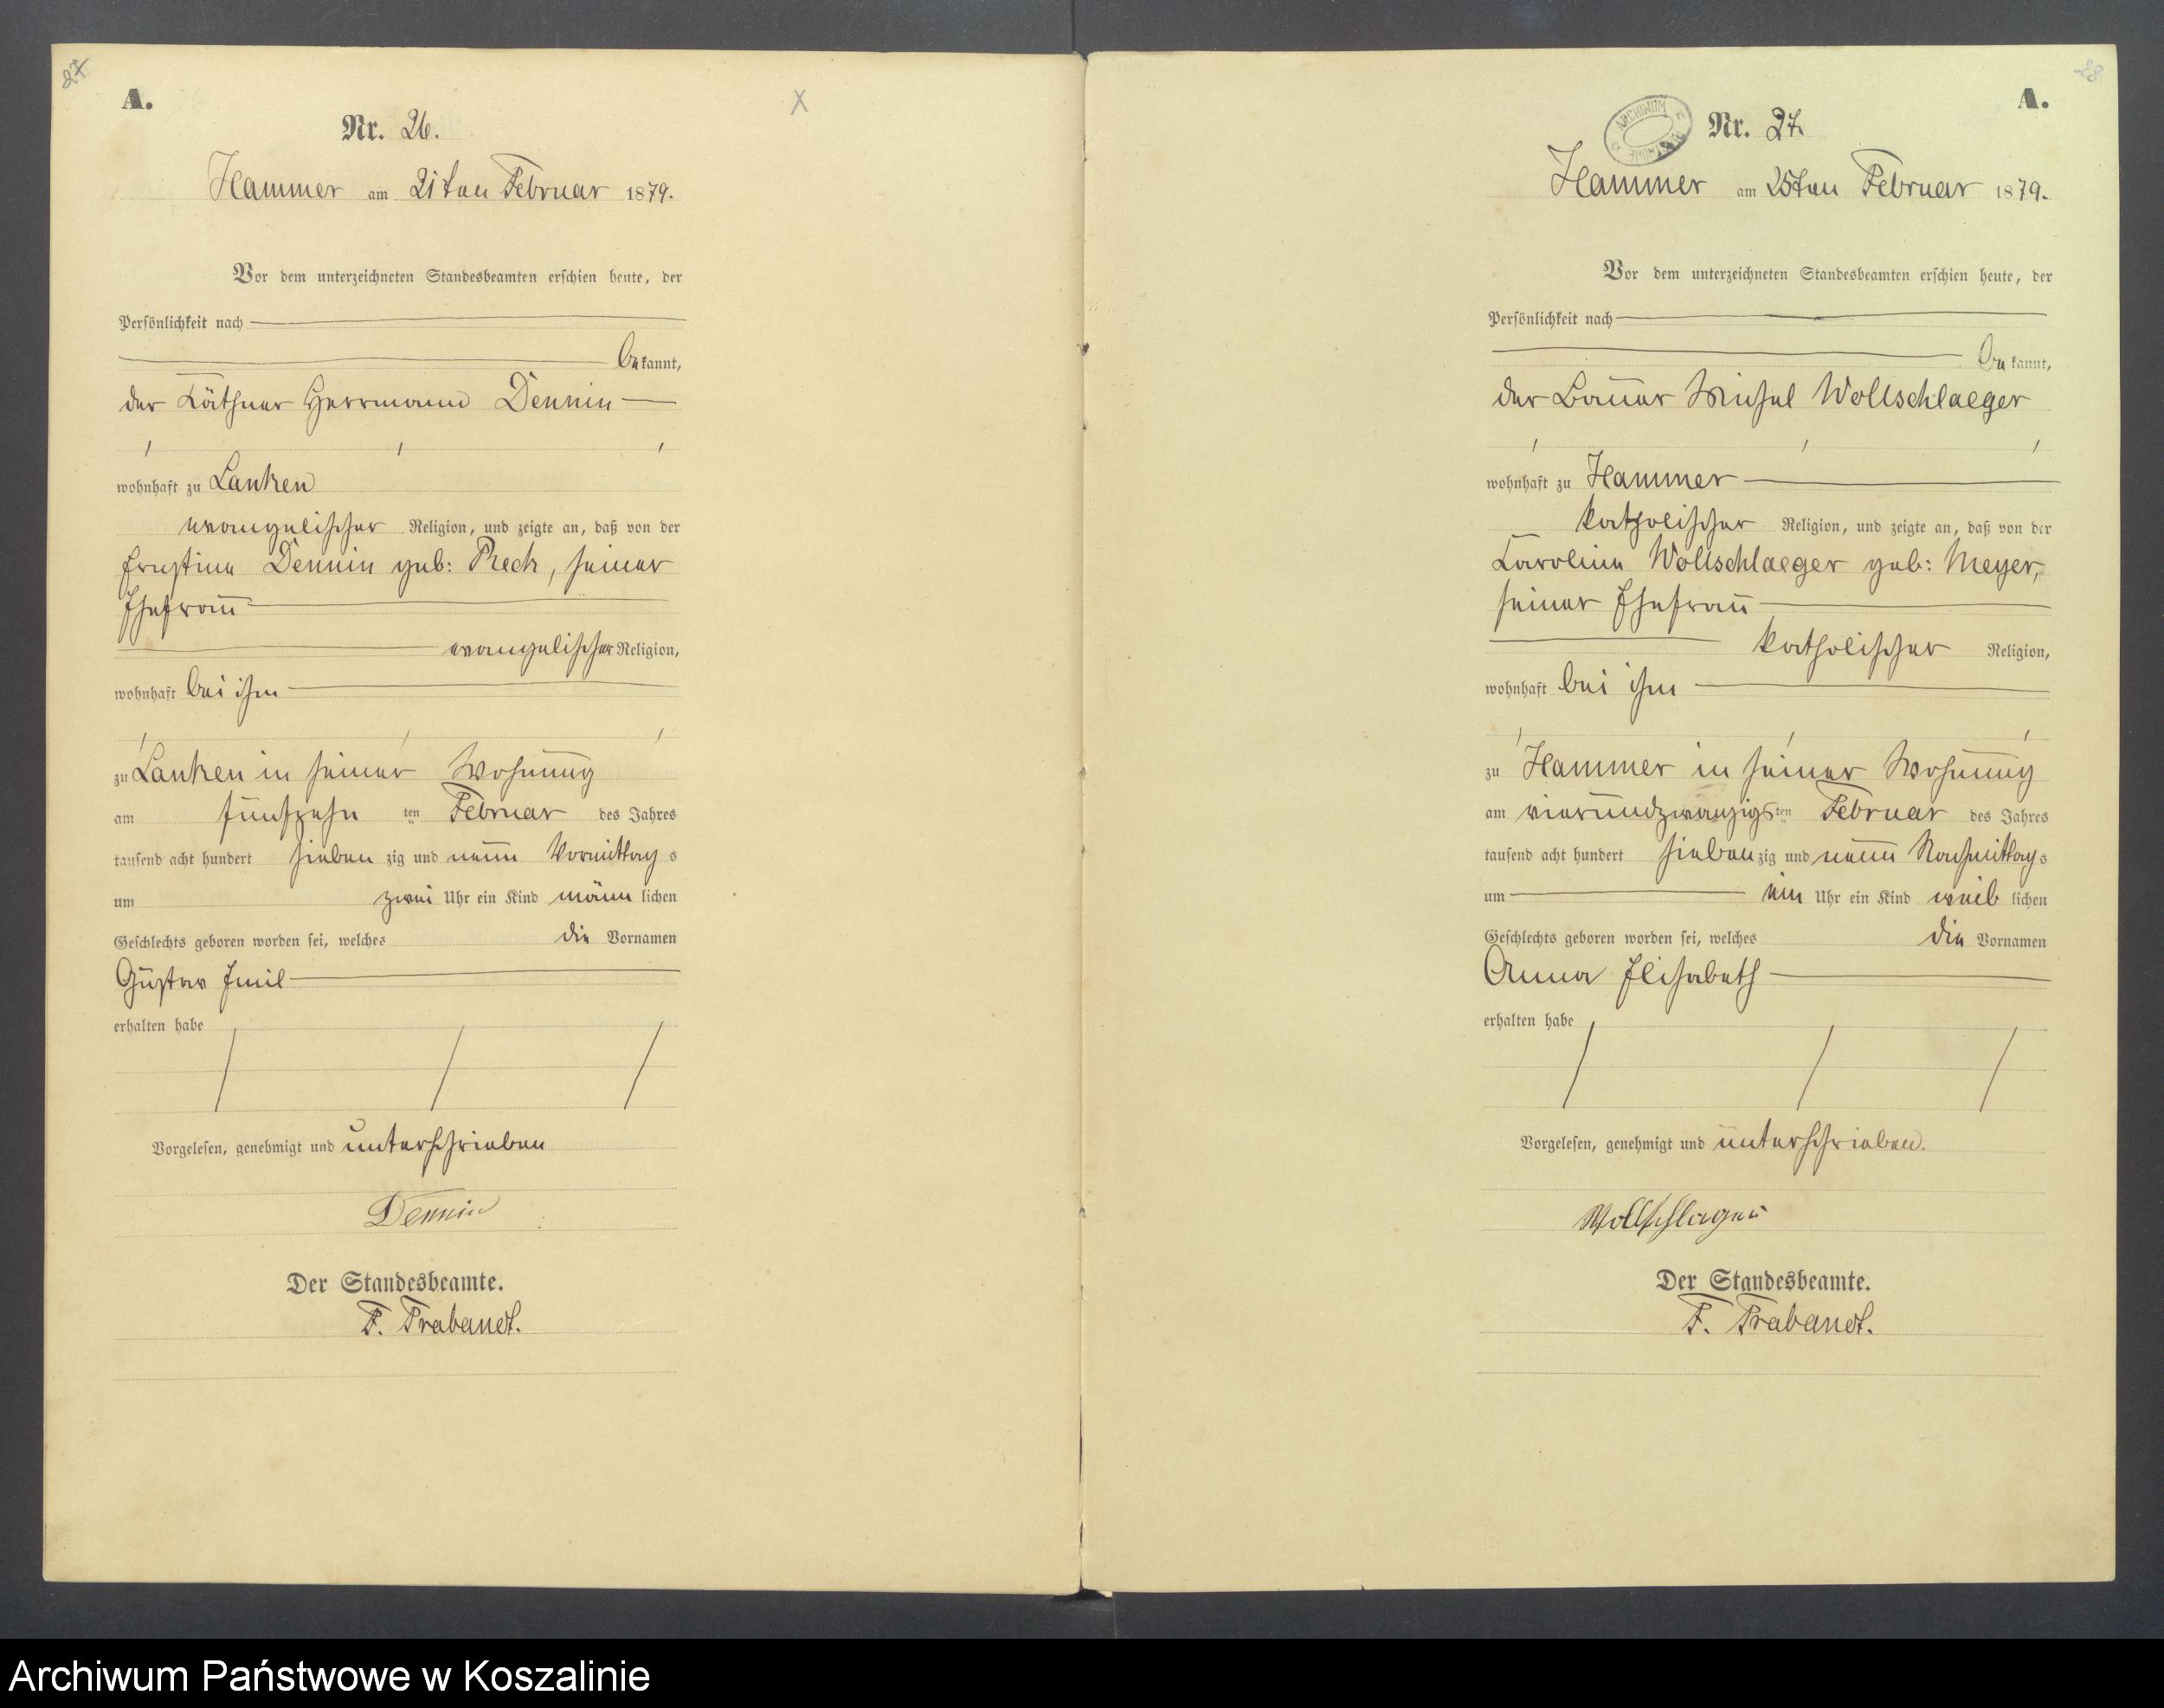 27
A.
X
Nr. 26.
Hammer am 21ten Februar 1879.
Vor dem unterzeichneten Standesbeamten erschien heute, der
Persönlichkeit nach
bekannt,
der Käthner Herrmann Dennin
wohnhaft zu Lanken
evangelischer Religion, und zeigte an, daß von der
Ernstine Dennin geb: Rech, seiner
Ehefrau
evangelischer Religion,
wohnhaft bei ihm
zu Lanken in seiner Wohnung
am fünfzehnten Februar des Jahres
tausend acht hundert siebenzig und neun Vormittags
um zwei Uhr ein Kind männlichen
Geschlechts geboren worden sei, welches die Vornamen
Gustav Emil
erhalten habe
Vorgelesen, genehmigt und unterschrieben
Dennin
Der Standesbeamte.
F. Trabandt.
28
A.
ARCHIWUM
Nr. 27.
Hammer am 25ten Februar 1879.
Vor dem unterzeichneten Standesbeamten erschien heute, der
Persönlichkeit nach
bekannt,
der Bauer Michel Wollschlaeger
wohnhaft zu Hammer
katholischer Religion, und zeigte an, daß von der
Caroline Wollschlaeger geb: Meyer,
seiner Ehefrau
katholischer Religion,
wohnhaft bei ihm
zu Hammer in seiner Wohnung
am vierundzwanzigsten Februar des Jahres
tausend acht hundert siebenzig und neun Nachmittags
um ein Uhr ein Kind weiblichen
Geschlechts geboren worden sei, welches die Vornamen
Anna Elisabeth
erhalten habe
Vorgelesen, genehmigt und unterschrieben.
Wollschlager
Der Standesbeamte.
F. Trabandt.
Archiwum Państwowe w Koszalinie